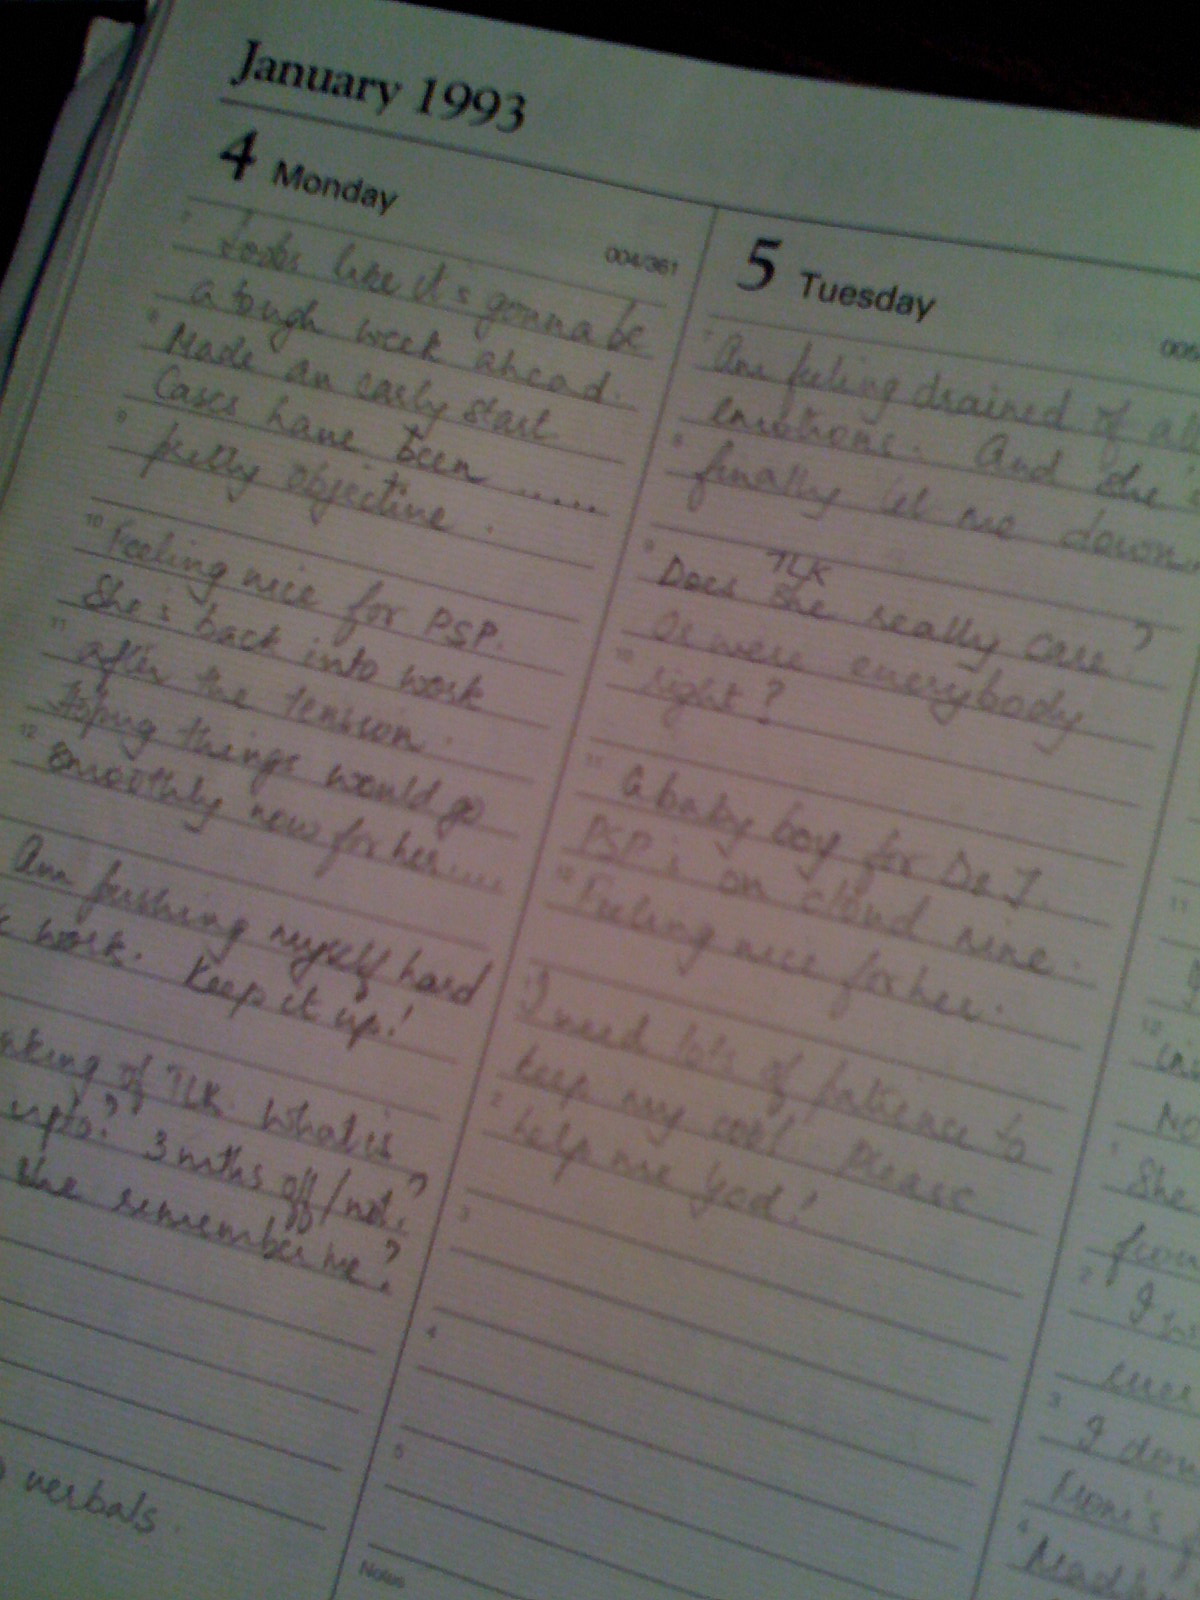 January 1993
4 Monday
004/361
Looks like it's gonna be
a tough week ahead.
Made an early start
Cases have been .....
pretty objective.
Feeling nice for PSP.
She's back into work
after the tension.
Hoping things would go
smoothly now for her....
Am pushing myself hard
work. Keep it up!
of TLK. What is
upto? 3 mths off/not?
she remember me?
verbals.
5 Tuesday
Am feeling drained of all
emotions. And she
finally let me down.
TLK
Does she really care?
Or were everybody
right?
A baby boy for De J.
PSP is on cloud nine.
Feeling nice for her.
I need lots of patience to
keep my cool! Please
help me God!
Notes
She
I
I don
Mom's